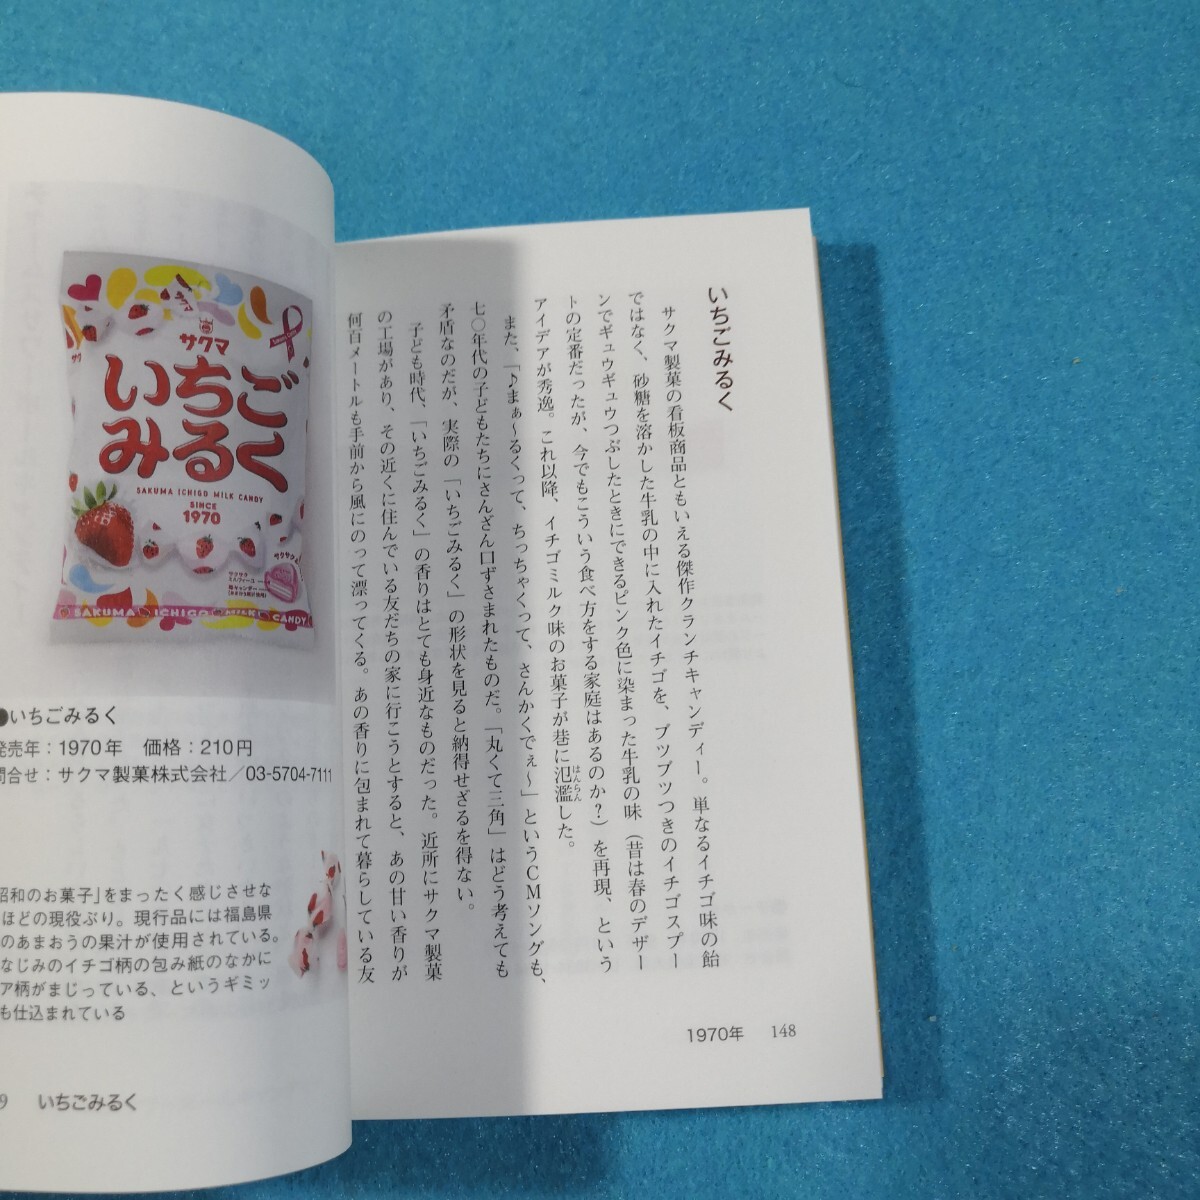 いちごみるく
サクマ製菓の看板商品ともいえる傑作クランチキャンディー。単なるイチゴ味の飴
ではなく、砂糖を溶かした牛乳の中に入れたイチゴを、ブツブツつきのイチゴスプー
ンでギュウギュウつぶしたときにできるピンク色に染まった牛乳の味（昔は春のデザー
トの定番だったが、今でもこういう食べ方をする家庭はあるのか？）を再現、という
アイデアが秀逸。これ以降、イチゴミルク味のお菓子が巷に氾濫した。
はんらん
また、「♪まぁ〜るくって、ちっちゃくって、さんかくでぇ〜」というCMソングも、
七〇年代の子どもたちにさんざん口ずさまれたものだ。「丸くて三角」はどう考えても
矛盾なのだが、実際の「いちごみるく」の形状を見ると納得せざるを得ない。
子ども時代、「いちごみるく」の香りはとても身近なものだった。近所にサクマ製菓
の工場があり、その近くに住んでいる友だちの家に行こうとすると、あの甘い香りが
何百メートルも手前から風にのって漂ってくる。あの香りに包まれて暮らしている友
1970年 148
サクマ
いちご
みるく
SAKUMA ICHIGO MILK CANDY
SINCE
1970
サクサク
SAKUMA ICHIGO MILK CANDY
●いちごみるく
発売年：1970年 価格：210円
問合せ：サクマ製菓株式会社／03-5704-7111
昭和のお菓子」をまったく感じさせな
ほどの現役ぶり。現行品には福島県
のあまおうの果汁が使用されている。
なじみのイチゴ柄の包み紙のなかに
ア柄がまじっている、というギミッ
も仕込まれている
9 いちごみるく